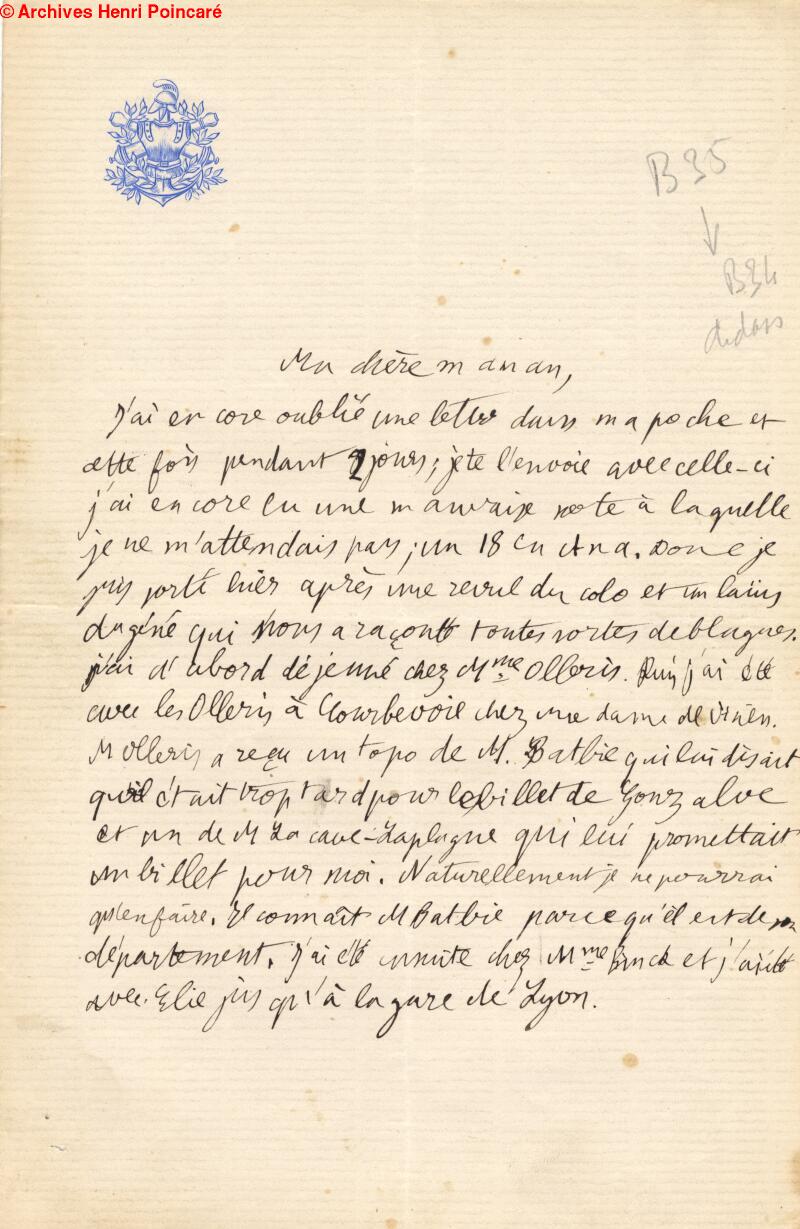 © Archives Henri Poincaré
B 35
B34
dedans
Ma chère maman,
J'ai encore oublié une lettre dans ma poche et
cette fois pendant 2 jours; je te l'envoie avec celle-ci
j'ai encore eu une mauvaise note à laquelle
je ne m'attendais pas; un 18 en Ana. Donc je
suis sorti hier après une revue du colo et un laïus
du géné qui nous a raconté toutes sortes de blagues.
j'ai d'abord déjeuné chez Mme Olleris. Puis j'ai été
avec les Olleris à Courbevoie chez une dame de
M Olleris a reçu un topo de M. Batbie qui lui disait
qu'il était trop tard pour le billet de Gonzalve
et un de M Lacave-Laplagne qui lui promettait
un billet pour moi. Naturellement je ne pourrai
qu'en faire. Il connaît M Batbie parce qu'il est de son
département. J'ai été ensuite chez Mme Rinck et j'ai été
avec Elie jusqu'à la gare de Lyon.